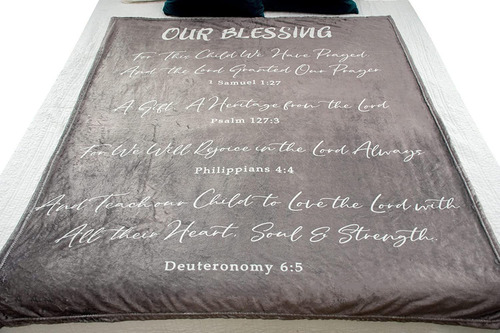 OUR BLESSING
For This Child We Have Prayed
And the Lord Granted Our Prayer
1 Samuel 1:27
A Gift, A Heritage from the Lord
Psalm 127:3
For We Will Rejoice in the Lord Always
Philippians 4:4
And Teach our Child to Love the Lord with
All their Heart, Soul & Strength.
Deuteronomy 6:5